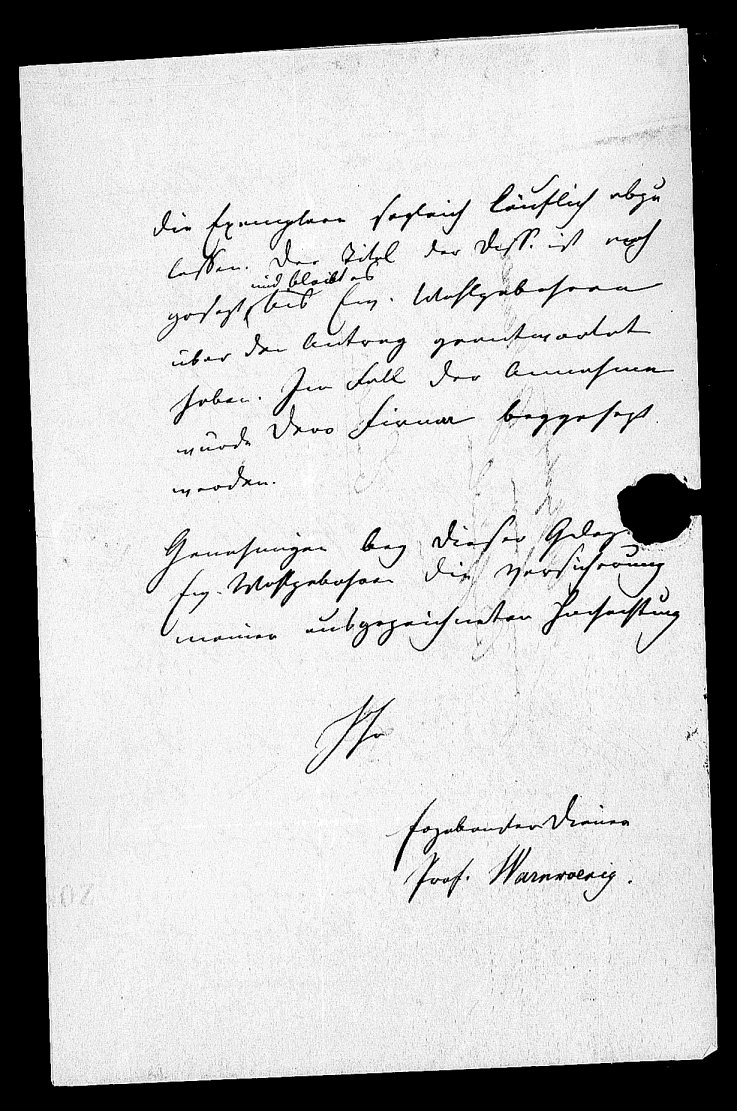 die Exemplare sogleich käuflich abzu
lassen. Der Titel der Diss. ist noch
und bleibt es
gesezt, bis Ew. Wohlgebohren
über den Antrag geantwortet
haben. Im Fall der Annahme
wurde Dero Firma beygesezt
werden.
Genehmigen bey dieser Geleg
Ew. Wohlgebohren die Versicherung
meiner ausgezeichneten Hochachtung
Ihr
ergebenster Diener
Prof. Warnkoenig.